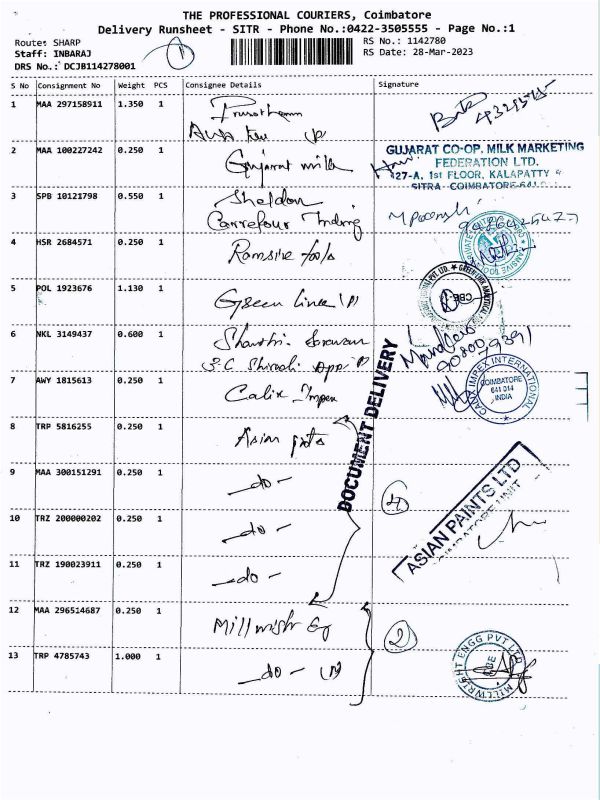 THE PROFESSIONAL COURIERS, Coimbatore
Delivery Runsheet - SITR - Phone No.:0422-3505555 - Page No.:1
Route: SHARP
Staff: INBARAJ
DRS No.: DCJB114278001
1
RS No.: 1142780
RS Date: 28-Mar-2023
S No Consignment No Weight PCS Consignee Details Signature
1 MAA 297158911 1.350 1
2 MAA 100227242 0.250 1 Gujarat milk
GUJARAT CO-OP. MILK MARKETING
FEDERATION LTD.
127-A, 1st FLOOR, KALAPATTY
SITRA COIMBATORE-641
3 SPB 10121798 0.550 1 Sheldon
Carrefour Trading
4 HSR 2684571 0.250 1
5 POL 1923676 1.130 1 Green Linea
GREEN LINK ANALYTICAL
CBE-
6 NKL 3149437 0.600 1 Shanthi
3-C Shivani App
7 AWY 1815613 0.250 1 Calix Impex
CALIX IMPEX INTERNATIONAL
COIMBATORE
641 014
INDIA
DOCUMENT DELIVERY
8 TRP 5816255 0.250 1 Asian
9 MAA 300151291 0.250 1 -do-
4
ASIAN PAINTS LTD
COIMBATORE UNIT
10 TRZ 200000202 0.250 1 -do-
11 TRZ 190023911 0.250 1 -do-
12 MAA 296514687 0.250 1
2
13 TRP 4785743 1.000 1 -do-
MILLWRIGHT ENGG PVT LTD
CBE